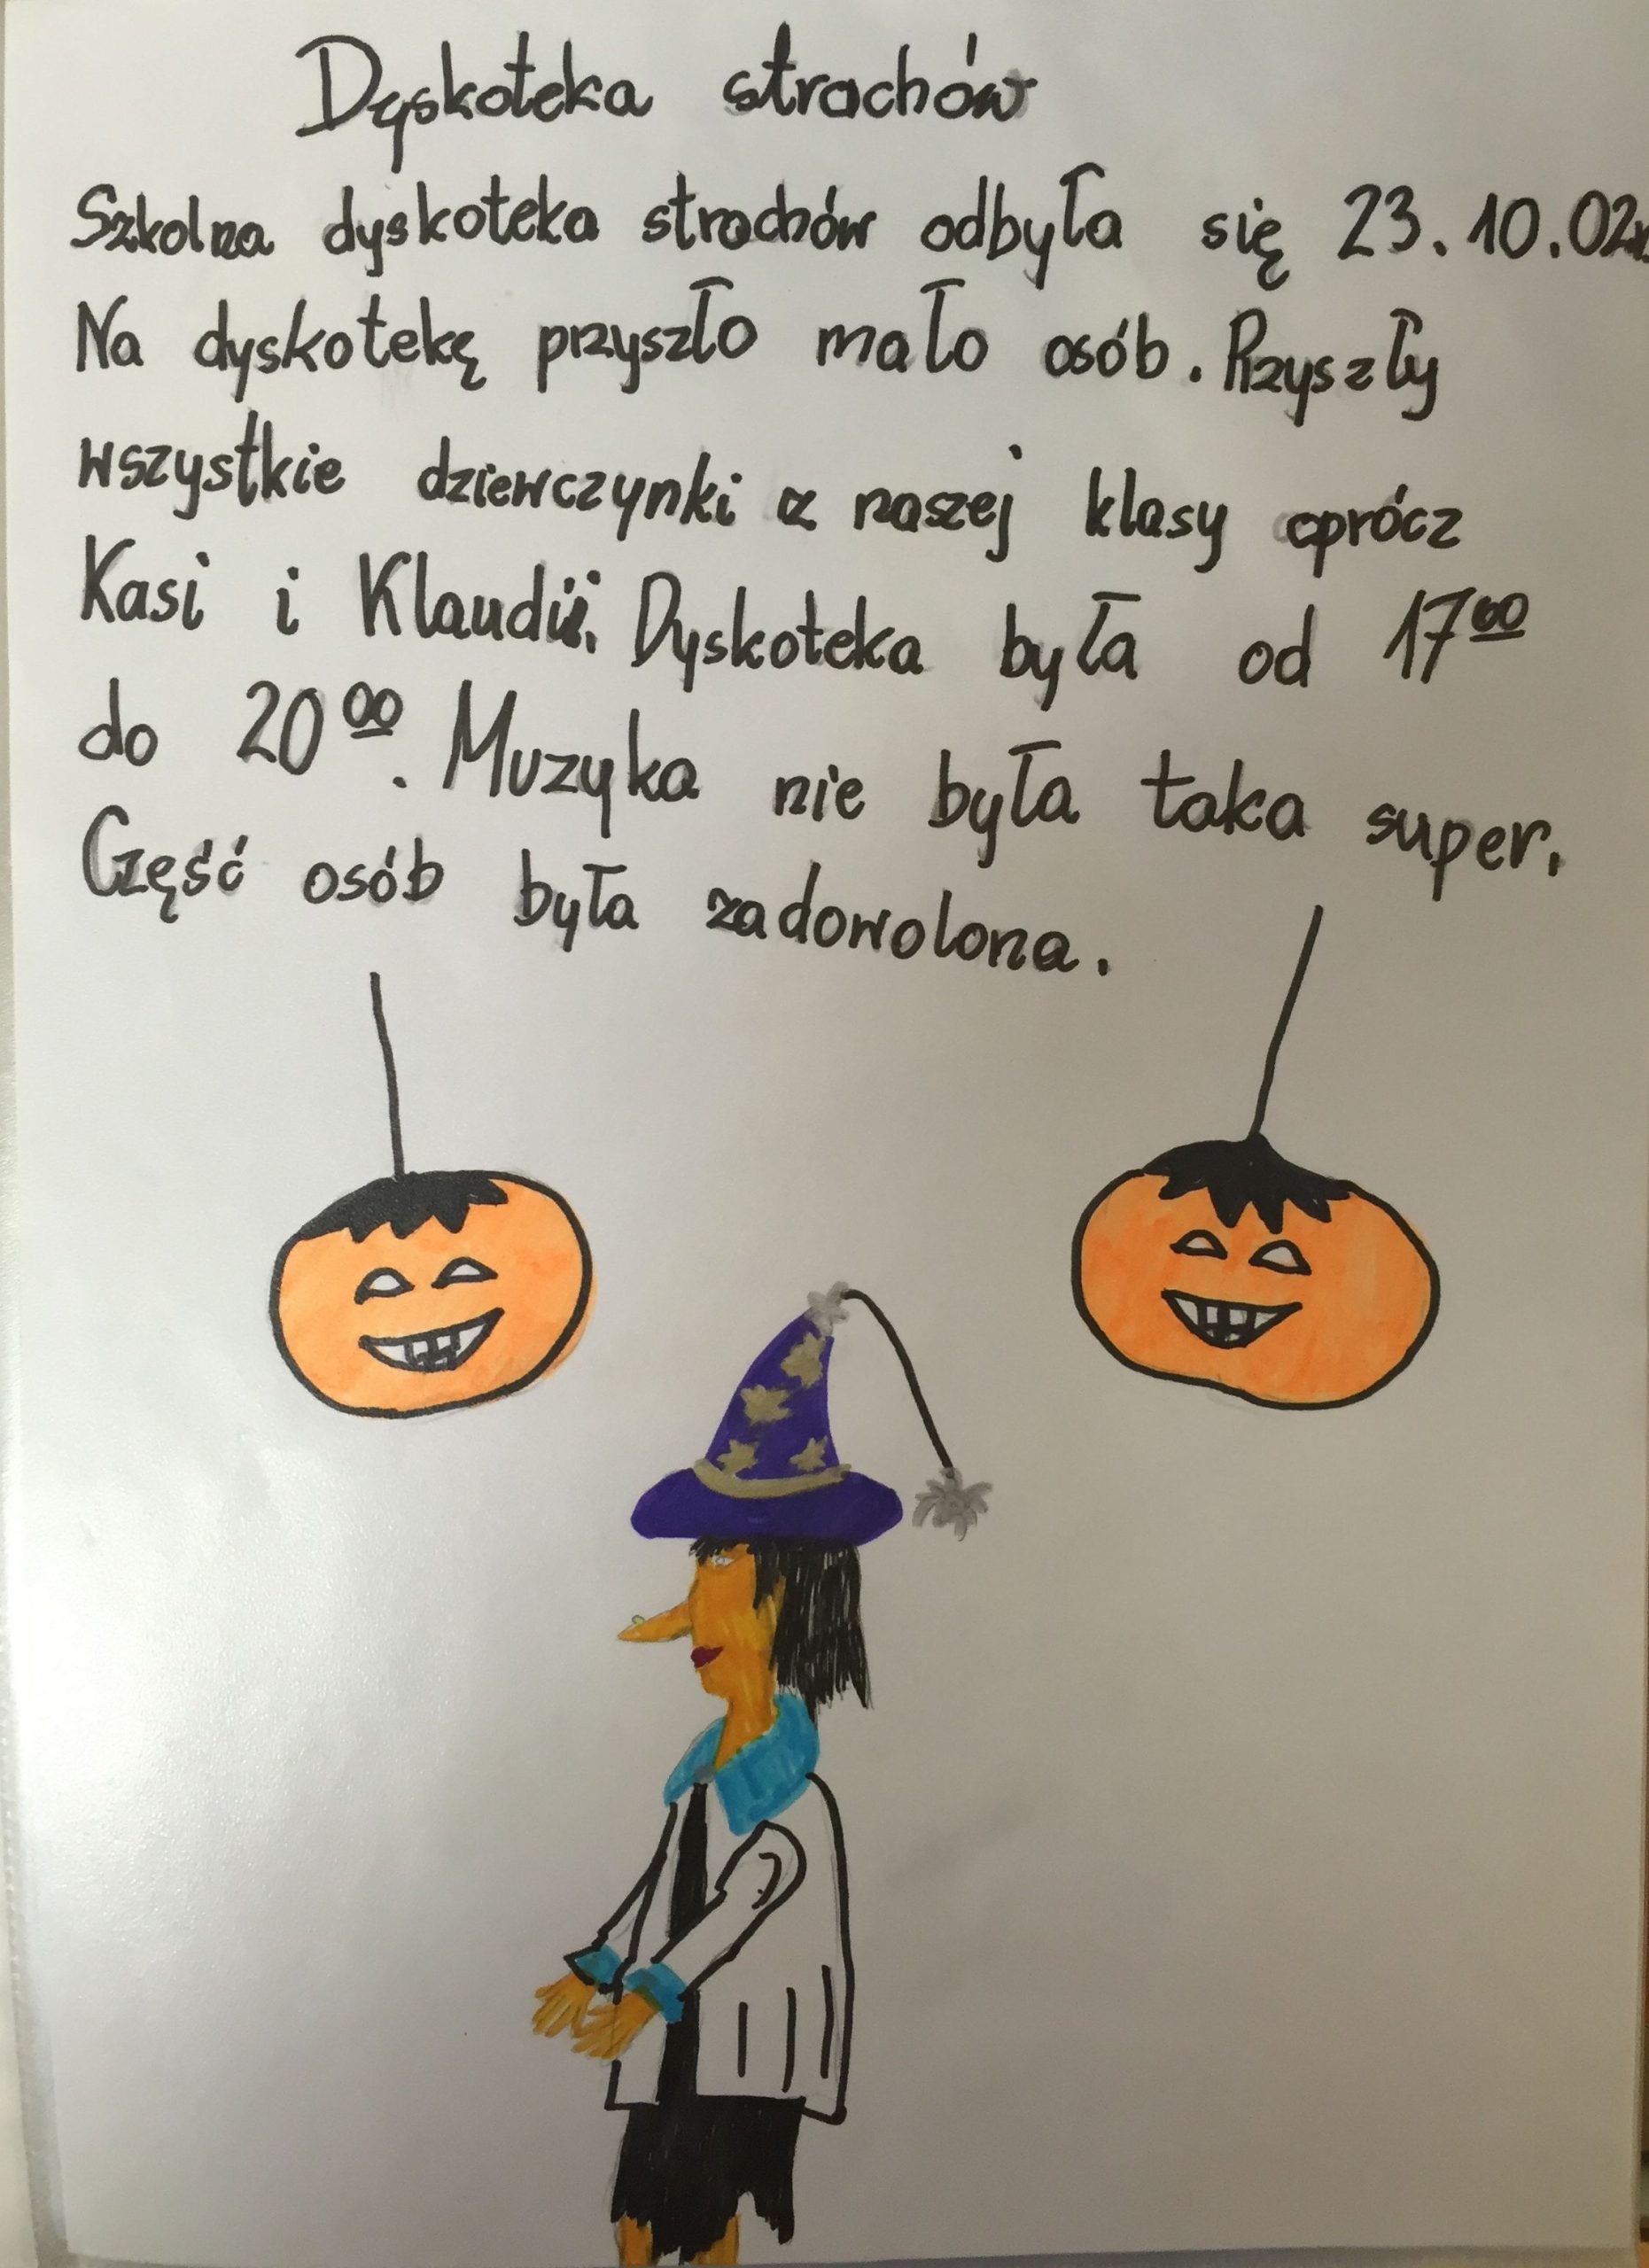 Dyskoteka strachów
Szkolna dyskoteka strachów odbyła się 23.10.02r.
Na dyskotekę przyszło mało osób. Przyszły
wszystkie dziewczynki z naszej klasy oprócz
Kasi i Klaudii. Dyskoteka była od 17⁰⁰
do 20⁰⁰. Muzyka nie była taka super.
Część osób była zadowolona.